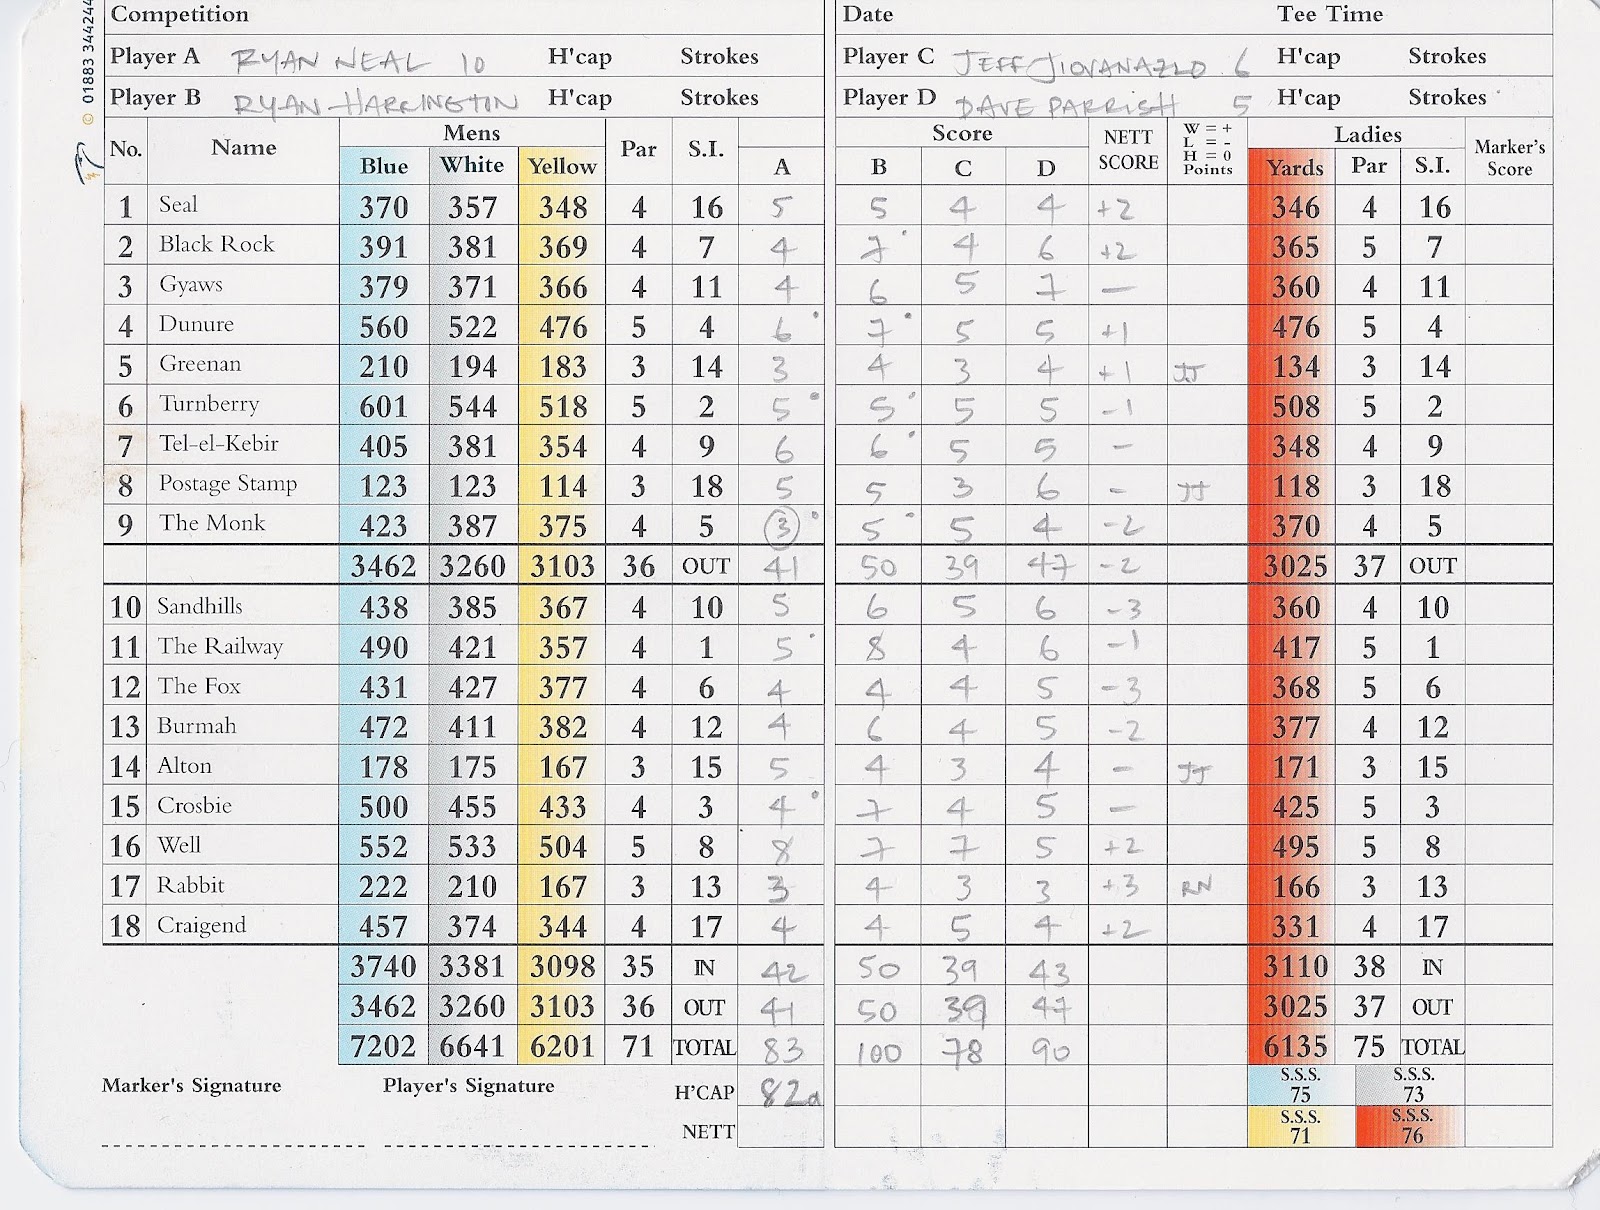 © 01883 344244
Competition Date Tee Time
Player A RYAN NEAL 10 H'cap Strokes Player C JEFF JIOVANAZZO 6 H'cap Strokes
Player B RYAN HARRINGTON H'cap Strokes Player D DAVE PARRISH 5 H'cap Strokes
No. Name Mens Par S.I. Score NETT SCORE W = + L = - H = 0 Points Ladies Marker's Score
Blue White Yellow A B C D Yards Par S.I.
1 Seal 370 357 348 4 16 5 5 4 4 +2 346 4 16
2 Black Rock 391 381 369 4 7 4 7 4 6 +2 365 5 7
3 Gyaws 379 371 366 4 11 4 6 5 7 — 360 4 11
4 Dunure 560 522 476 5 4 6 7 5 5 +1 476 5 4
5 Greenan 210 194 183 3 14 3 4 3 4 +1 JJ 134 3 14
6 Turnberry 601 544 518 5 2 5 5 5 5 -1 508 5 2
7 Tel-el-Kebir 405 381 354 4 9 6 6 5 5 - 348 4 9
8 Postage Stamp 123 123 114 3 18 5 5 3 6 - JJ 118 3 18
9 The Monk 423 387 375 4 5 3 5 5 4 -2 370 4 5
3462 3260 3103 36 OUT 41 50 39 47 -2 3025 37 OUT
10 Sandhills 438 385 367 4 10 5 6 5 6 -3 360 4 10
11 The Railway 490 421 357 4 1 5 8 4 6 -1 417 5 1
12 The Fox 431 427 377 4 6 4 4 4 5 -3 368 5 6
13 Burmah 472 411 382 4 12 4 6 4 5 -2 377 4 12
14 Alton 178 175 167 3 15 5 4 3 4 - JJ 171 3 15
15 Crosbie 500 455 433 4 3 4 7 4 5 - 425 5 3
16 Well 552 533 504 5 8 8 7 7 5 +2 495 5 8
17 Rabbit 222 210 167 3 13 3 4 3 3 +3 RN 166 3 13
18 Craigend 457 374 344 4 17 4 4 5 4 +2 331 4 17
3740 3381 3098 35 IN 42 50 39 43 3110 38 IN
3462 3260 3103 36 OUT 41 50 39 47 3025 37 OUT
7202 6641 6201 71 TOTAL 83 100 78 90 6135 75 TOTAL
Marker's Signature Player's Signature H'CAP 82a S.S.S. 75 S.S.S. 73
NETT S.S.S. 71 S.S.S. 76